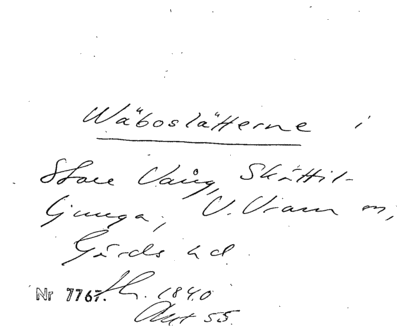 Wäboslätterne i
Store Vång, Skättil-
ljunga, V. Vram m,
Gärds hd
Nr 7767. Sk. 1840
Akt 55.